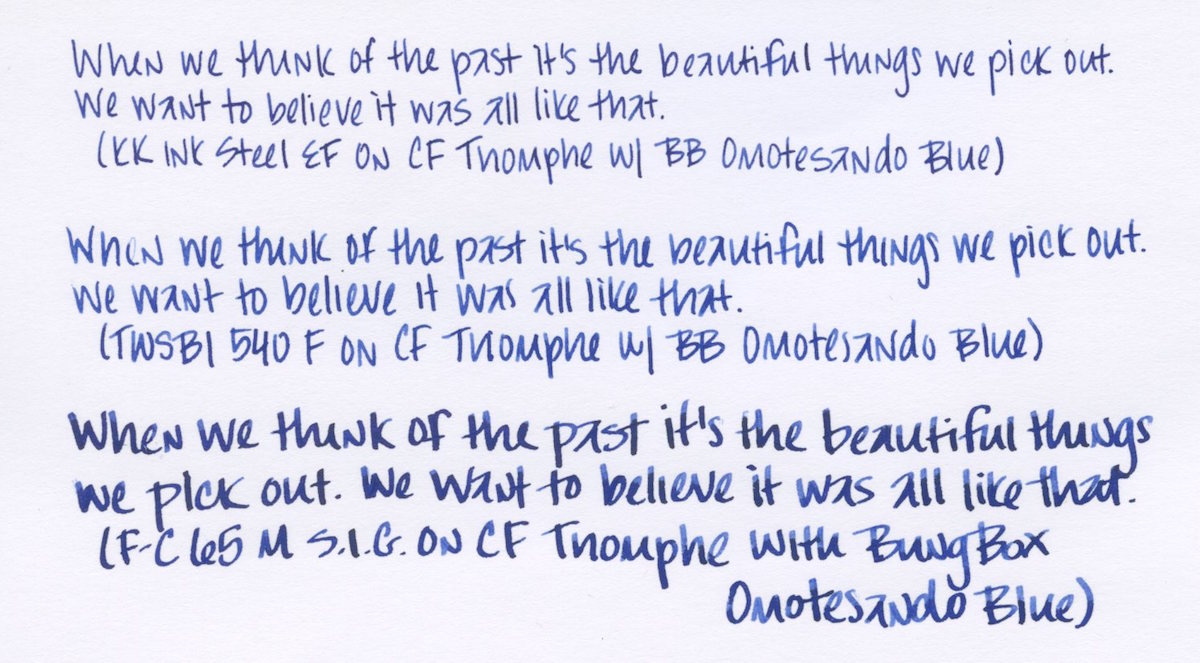 When we think of the past it's the beautiful things we pick out.
We want to believe it was all like that.
(KK INK Steel EF ON CF Triomphe w/ BB Omotesando Blue)
When we think of the past it's the beautiful things we pick out.
We want to believe it was all like that.
(TWSBI 540 F ON CF Triomphe w/ BB Omotesando Blue)
When we think of the past it's the beautiful things
we pick out. We want to believe it was all like that.
(F-C 65 M S.I.G. ON CF Triomphe with BungBox
Omotesando Blue)